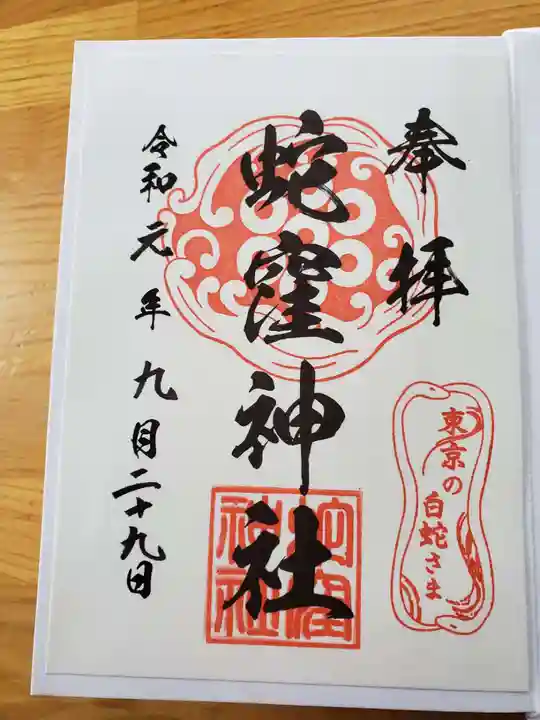 奉拝
東京の
白蛇さま
蛇窪神社
蛇窪
神社
令和元年九月二十九日